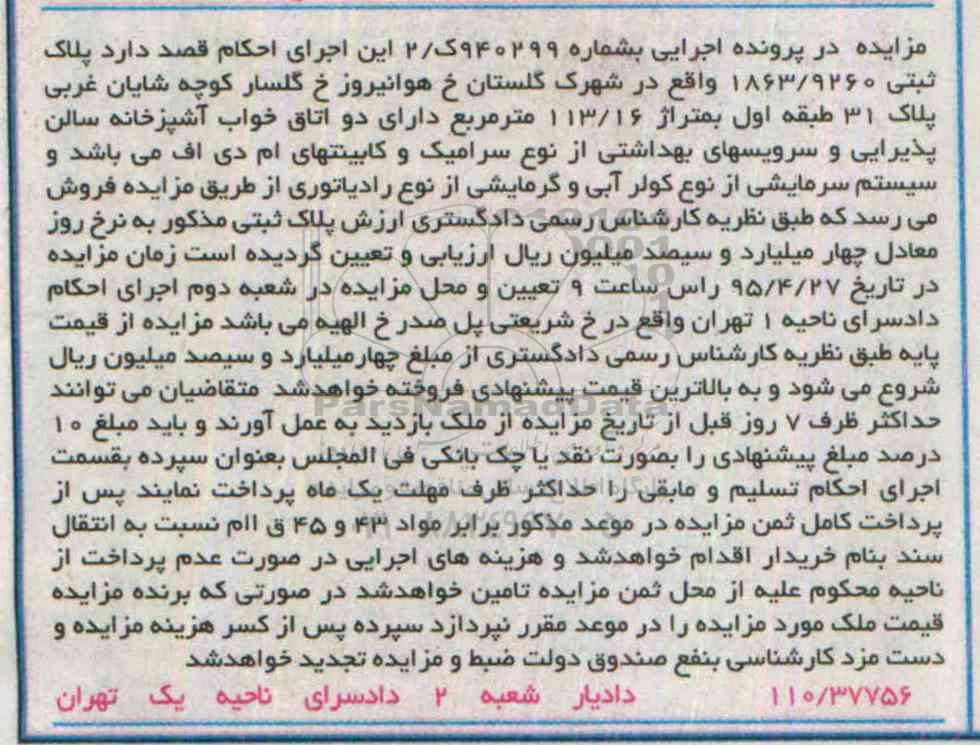 مزایده در پرونده اجرایی بشماره ۹۴۰۲۹۹ک/۲ این اجرای احکام قصد دارد پلاک
ثبتی ۱۸۶۳/۹۲۶۰ واقع در شهرک گلستان خ هوانیروز خ گلسار کوچه شایان غربی
پلاک ۳۱ طبقه اول بمتراژ ۱۱۳/۱۶ مترمربع دارای دو اتاق خواب آشپزخانه سالن
پذیرایی و سرویسهای بهداشتی از نوع سرامیک و کابینتهای ام دی اف می باشد و
سیستم سرمایشی از نوع کولر آبی و گرمایشی از نوع رادیاتوری از طریق مزایده فروش
می رسد که طبق نظریه کارشناس رسمی دادگستری ارزش پلاک ثبتی مذکور به نرخ روز
معادل چهار میلیارد و سیصد میلیون ریال ارزیابی و تعیین گردیده است زمان مزایده
در تاریخ ۹۵/۴/۲۷ راس ساعت ۹ تعیین و محل مزایده در شعبه دوم اجرای احکام
دادسرای ناحیه ۱ تهران واقع در خ شریعتی پل صدر خ الهیه می باشد مزایده از قیمت
پایه طبق نظریه کارشناس رسمی دادگستری از مبلغ چهارمیلیارد و سیصد میلیون ریال
شروع می شود و به بالاترین قیمت پیشنهادی فروخته خواهدشد متقاضیان می توانند
حداکثر ظرف ۷ روز قبل از تاریخ مزایده از ملک بازدید به عمل آورند و باید مبلغ ۱۰
درصد مبلغ پیشنهادی را بصورت نقد یا چک بانکی فی المجلس بعنوان سپرده بقسمت
اجرای احکام تسلیم و مابقی را حداکثر ظرف مهلت یک ماه پرداخت نمایند پس از
پرداخت کامل ثمن مزایده در موعد مذکور برابر مواد ۴۳ و ۴۵ ق اام نسبت به انتقال
سند بنام خریدار اقدام خواهدشد و هزینه های اجرایی در صورت عدم پرداخت از
ناحیه محکوم علیه از محل ثمن مزایده تامین خواهدشد در صورتی که برنده مزایده
قیمت ملک مورد مزایده را در موعد مقرر نپردازد سپرده پس از کسر هزینه مزایده و
دست مزد کارشناسی بنفع صندوق دولت ضبط و مزایده تجدید خواهدشد
۱۱۰/۳۷۷۵۶ دادیار شعبه ۲ دادسرای ناحیه یک تهران
ParsNamadData